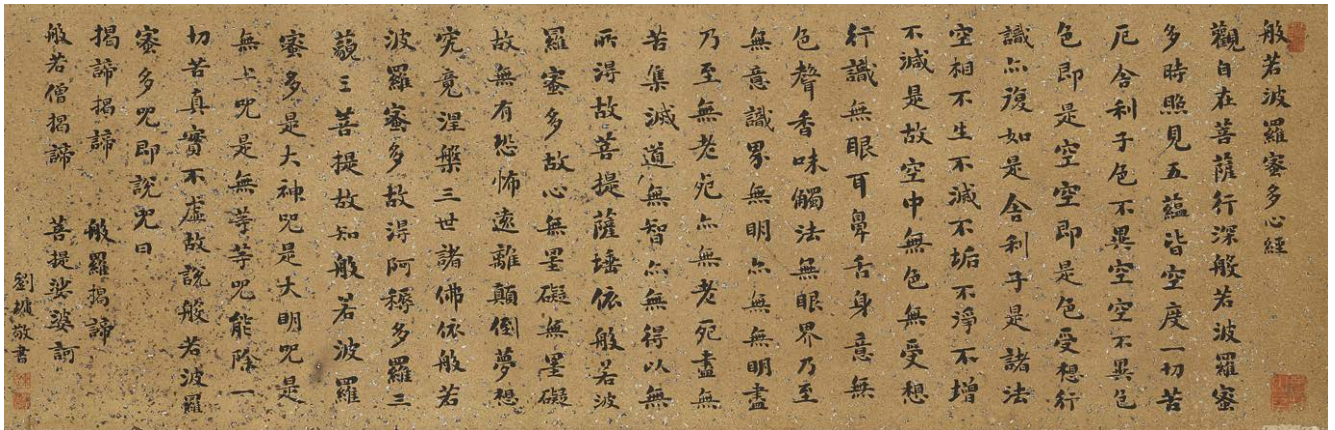 般若波羅蜜多心經
觀自在菩薩行深般若波羅蜜
多時照見五蘊皆空度一切苦
厄舍利子色不異空空不異色
色即是空空即是色受想行
識亦復如是舍利子是諸法
空相不生不滅不垢不淨不增
不減是故空中無色無受想
行識無眼耳鼻舌身意無
色聲香味觸法無眼界乃至
無意識界無明亦無無明盡
乃至無老死亦無老死盡無
苦集滅道無智亦無得以無
所得故菩提薩埵依般若波
羅蜜多故心無罣礙無罣礙
故無有恐怖遠離顛倒夢想
究竟涅槃三世諸佛依般若
波羅蜜多故得阿耨多羅三
藐三菩提故知般若波羅
蜜多是大神咒是大明咒是
無上咒是無等等咒能除一
切苦真實不虛故說般若波羅
蜜多咒即說咒曰
揭諦揭諦　般羅揭諦
般若僧揭諦　菩提娑婆訶
劉墉敬書